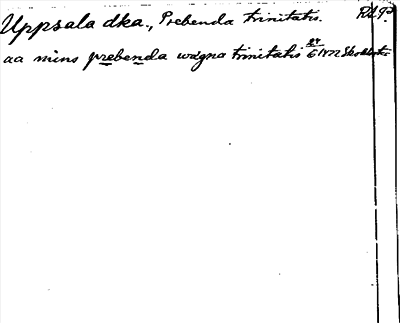 Uppsala dka., Prebenda trinitatis. RA9?
aa mins prebenda wagna trinitatis 24/6 1422 Skokloster